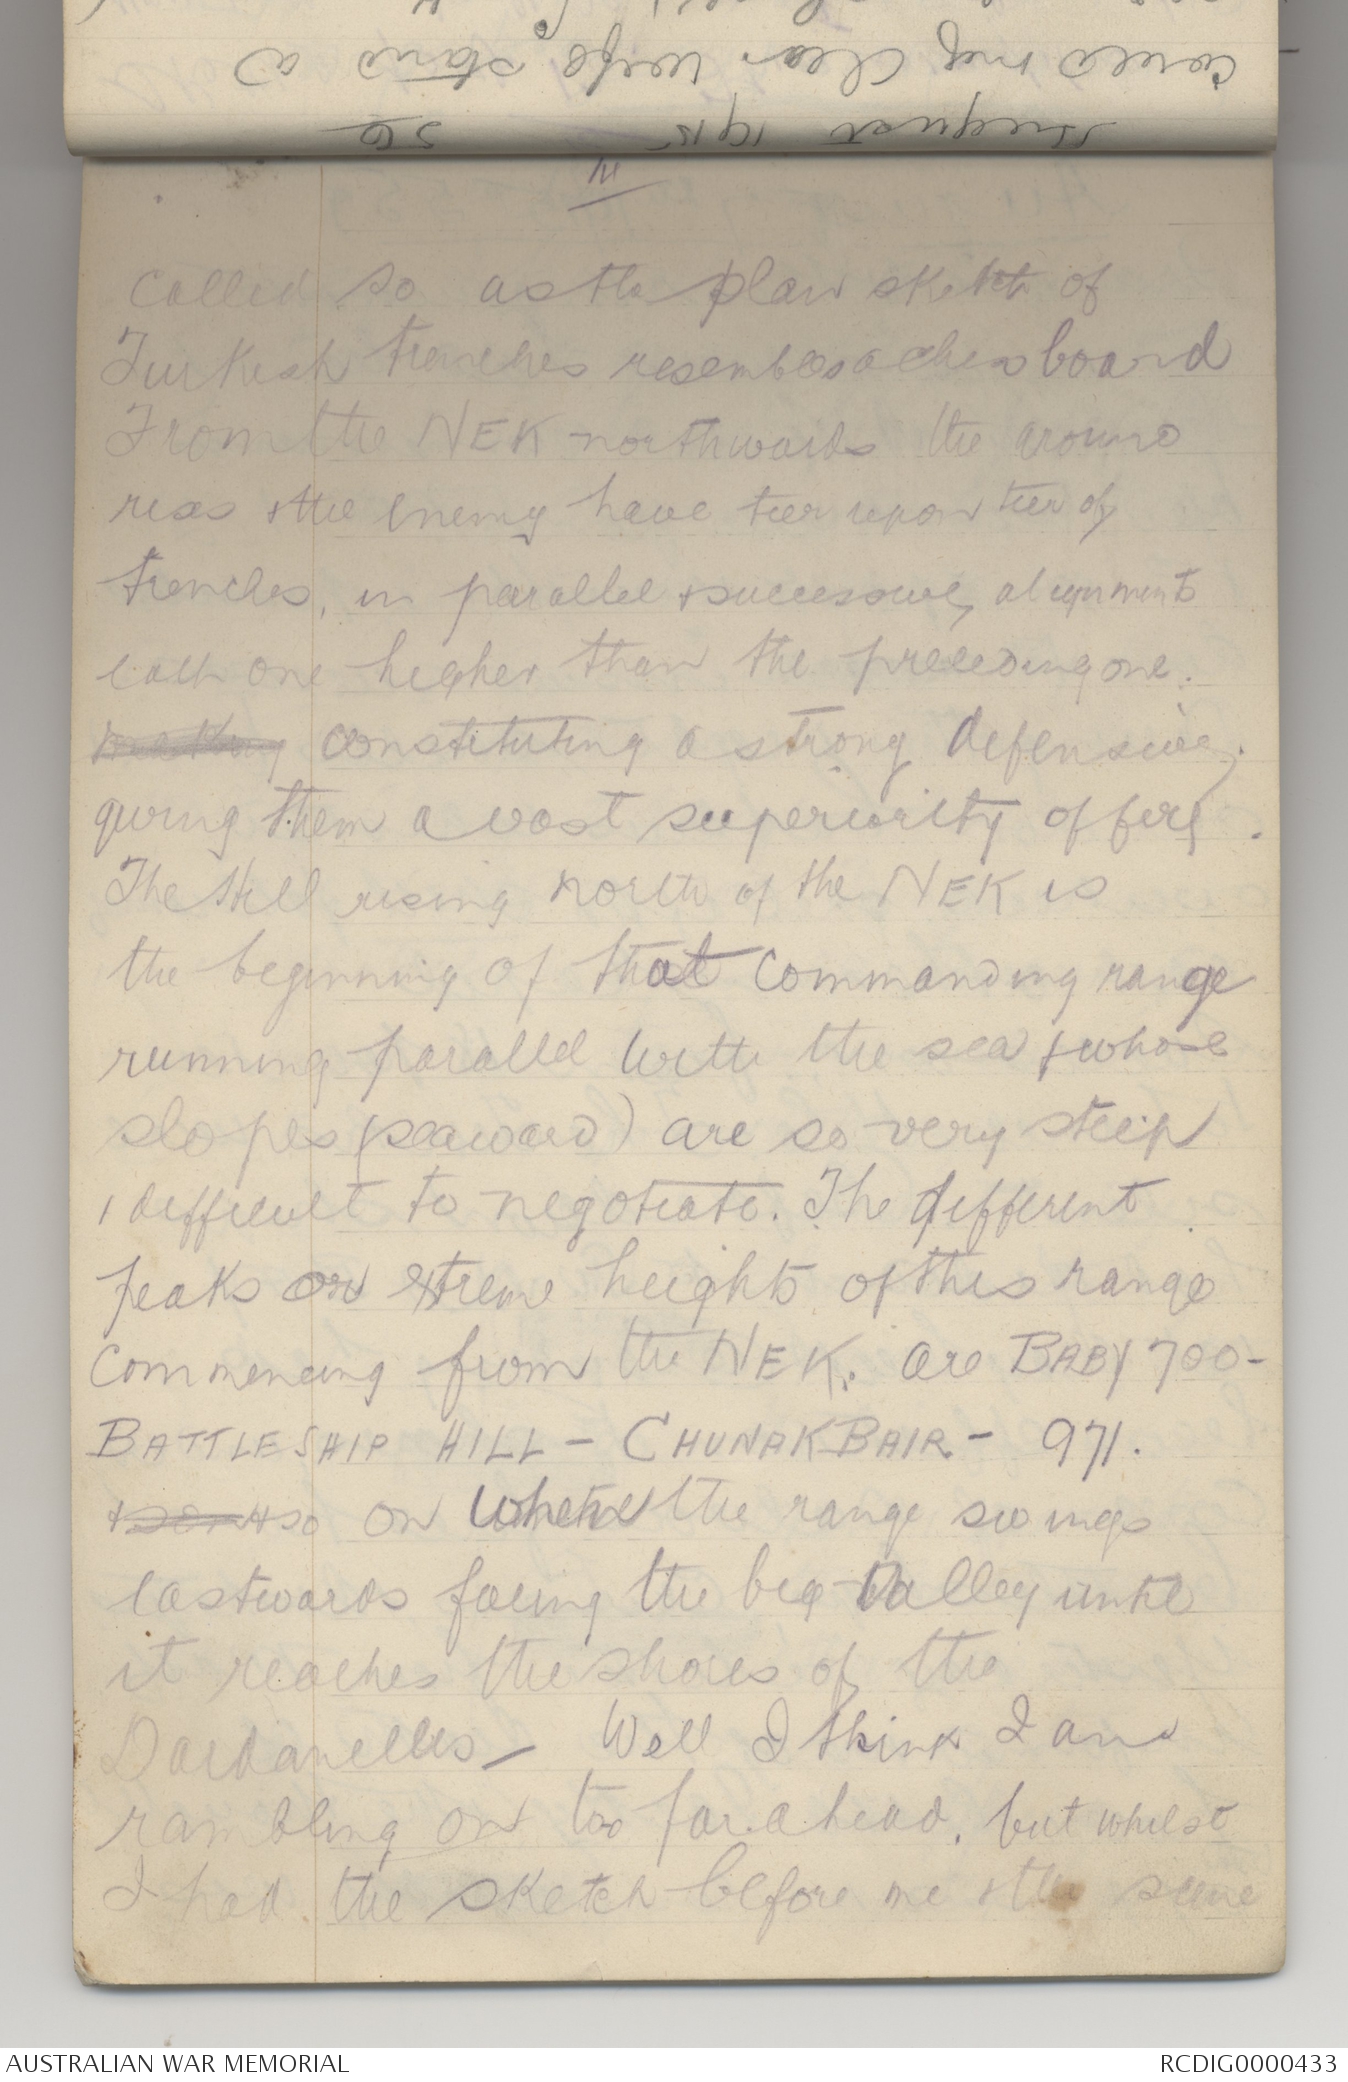 August 1915 56
cones my clear wife, stand a
IV
Called so as the plan sketch of
Turkish trenches resembles a chess board
From the NEK northwards the ground
rises & the enemy have tier upon tier of
trenches, in parallel & successive, alignments
each one higher than the preceeding one.
making constituting a strong defensive,
giving them a vast superiority of fire.
The Hill rising north of the NEK is
the beginning of that commanding range
running parallel with the sea & whose
slopes (seaward) are so very steep
& difficult to negotiate. The different
peaks or extreme heights of this range
Commencing from the NEK. are BABY 700-
BATTLESHIP HILL - CHUNAK BAIR - 971.
& so on & so on where the range swings
eastwards facing the big Valley until
it reaches the shores of the
Dardanelles - Well I think I am
rambling on too far ahead, but whilst
I had the sketch before me & the scene
AUSTRALIAN WAR MEMORIAL
RCDIG0000433